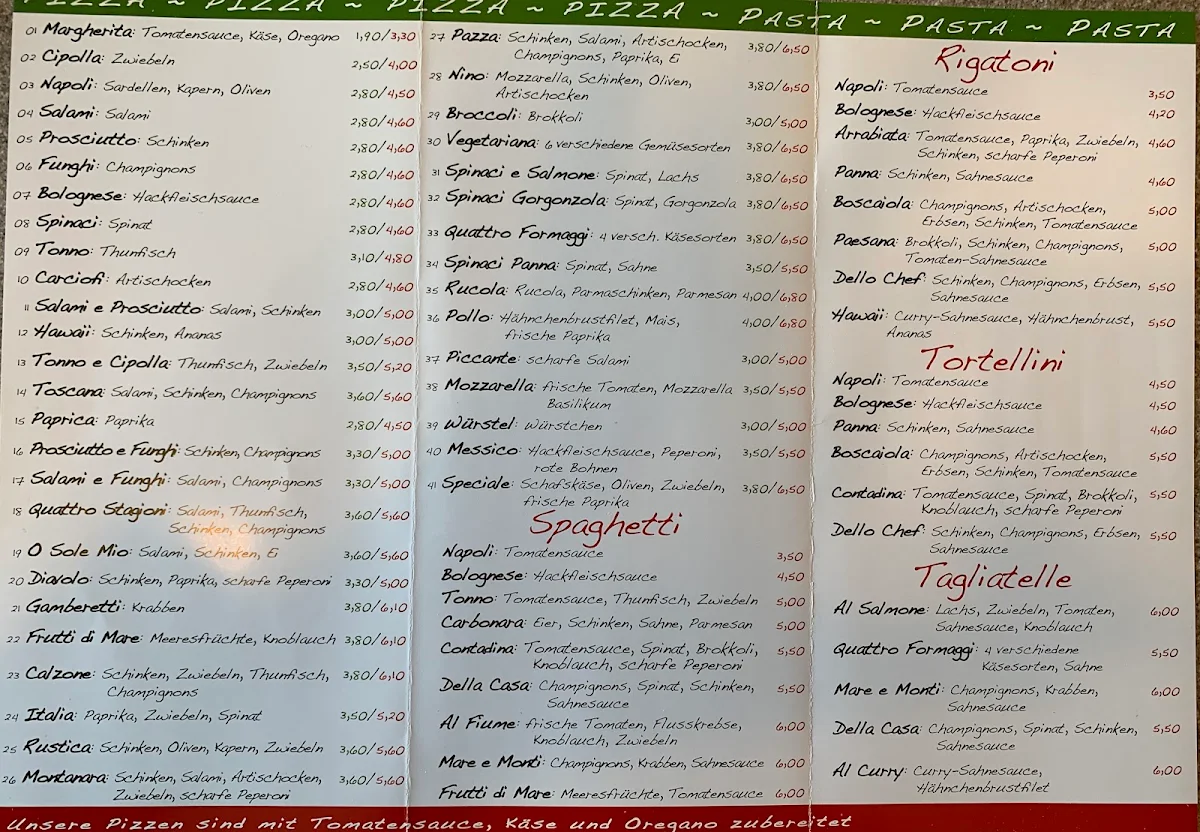 PIZZA ~ PIZZA ~ PIZZA ~ PIZZA ~ PASTA ~ PASTA ~ PASTA
01 Margherita: Tomatensauce, Käse, Oregano 1,90/3,30
02 Cipolla: Zwiebeln 2,50/4,00
03 Napoli: Sardellen, Kapern, Oliven 2,80/4,50
04 Salami: Salami 2,80/4,60
05 Prosciutto: Schinken 2,80/4,60
06 Funghi: Champignons 2,80/4,60
07 Bolognese: Hackfleischsauce 2,80/4,60
08 Spinaci: Spinat 2,80/4,60
09 Tonno: Thunfisch 3,10/4,80
10 Carciofi: Artischocken 2,80/4,60
11 Salami e Prosciutto: Salami, Schinken 3,00/5,00
12 Hawaii: Schinken, Ananas 3,00/5,00
13 Tonno e Cipolla: Thunfisch, Zwiebeln 3,50/5,20
14 Toscana: Salami, Schinken, Champignons 3,60/5,60
15 Paprica: Paprika 2,80/4,50
16 Prosciutto e Funghi: Schinken, Champignons 3,30/5,00
17 Salami e Funghi: Salami, Champignons 3,30/5,00
18 Quattro Stagioni: Salami, Thunfisch, 3,60/5,60
Schinken, Champignons
19 O Sole Mio: Salami, Schinken, Ei 3,60/5,60
20 Diavolo: Schinken, Paprika, scharfe Peperoni 3,30/5,00
21 Gamberetti: Krabben 3,80/6,10
22 Frutti di Mare: Meeresfrüchte, Knoblauch 3,80/6,10
23 Calzone: Schinken, Zwiebeln, Thunfisch, 3,80/6,10
Champignons
24 Italia: Paprika, Zwiebeln, Spinat 3,50/5,20
25 Rustica: Schinken, Oliven, Kapern, Zwiebeln 3,60/5,60
26 Montanara: Schinken, Salami, Artischocken, 3,60/5,60
Zwiebeln, scharfe Peperoni
27 Pazza: Schinken, Salami, Artischocken, 3,80/6,50
Champignons, Paprika, Ei
28 Nino: Mozzarella, Schinken, Oliven, 3,80/6,50
Artischocken
29 Broccoli: Brokkoli 3,00/5,00
30 Vegetariana: 6 verschiedene Gemüsesorten 3,80/6,50
31 Spinaci e Salmone: Spinat, Lachs 3,80/6,50
32 Spinaci Gorgonzola: Spinat, Gorgonzola 3,80/6,50
33 Quattro Formaggi: 4 versch. Käsesorten 3,80/6,50
34 Spinaci Panna: Spinat, Sahne 3,50/5,50
35 Rucola: Rucola, Parmaschinken, Parmesan 4,00/6,80
36 Pollo: Hähnchenbrustfilet, Mais, 4,00/6,80
frische Paprika
37 Piccante: scharfe Salami 3,00/5,00
38 Mozzarella: frische Tomaten, Mozzarella 3,50/5,50
Basilikum
39 Würstel: Würstchen 3,00/5,00
40 Messico: Hackfleischsauce, Peperoni, 3,50/5,50
rote Bohnen
41 Speciale: Schafskäse, Oliven, Zwiebeln, 3,80/6,50
frische Paprika
Spaghetti
Napoli: Tomatensauce 3,50
Bolognese: Hackfleischsauce 4,50
Tonno: Tomatensauce, Thunfisch, Zwiebeln 5,00
Carbonara: Eier, Schinken, Sahne, Parmesan 5,00
Contadina: Tomatensauce, Spinat, Brokkoli, 5,50
Knoblauch, scharfe Peperoni
Della Casa: Champignons, Spinat, Schinken, 5,50
Sahnesauce
Al Fiume: frische Tomaten, Flusskrebse, 6,00
Knoblauch, Zwiebeln
Mare e Monti: Champignons, Krabben, Sahnesauce 6,00
Frutti di Mare: Meeresfrüchte, Tomatensauce 6,00
Rigatoni
Napoli: Tomatensauce 3,50
Bolognese: Hackfleischsauce 4,20
Arrabiata: Tomatensauce, Paprika, Zwiebeln, 4,60
Schinken, scharfe Peperoni
Panna: Schinken, Sahnesauce 4,60
Boscaiola: Champignons, Artischocken, 5,00
Erbsen, Schinken, Tomatensauce
Paesana: Brokkoli, Schinken, Champignons, 5,00
Tomaten-Sahnesauce
Dello Chef: Schinken, Champignons, Erbsen, 5,50
Sahnesauce
Hawaii: Curry-Sahnesauce, Hähnchenbrust, 5,50
Ananas
Tortellini
Napoli: Tomatensauce 4,50
Bolognese: Hackfleischsauce 4,50
Panna: Schinken, Sahnesauce 4,60
Boscaiola: Champignons, Artischocken, 5,50
Erbsen, Schinken, Tomatensauce
Contadina: Tomatensauce, Spinat, Brokkoli, 5,50
Knoblauch, scharfe Peperoni
Dello Chef: Schinken, Champignons, Erbsen, 5,50
Sahnesauce
Tagliatelle
Al Salmone: Lachs, Zwiebeln, Tomaten, 6,00
Sahnesauce, Knoblauch
Quattro Formaggi: 4 verschiedene 5,50
Käsesorten, Sahne
Mare e Monti: Champignons, Krabben, 6,00
Sahnesauce
Della Casa: Champignons, Spinat, Schinken, 5,50
Sahnesauce
Al Curry: Curry-Sahnesauce, 6,00
Hähnchenbrustfilet
Unsere Pizzen sind mit Tomatensauce, Käse und Oregano zubereitet